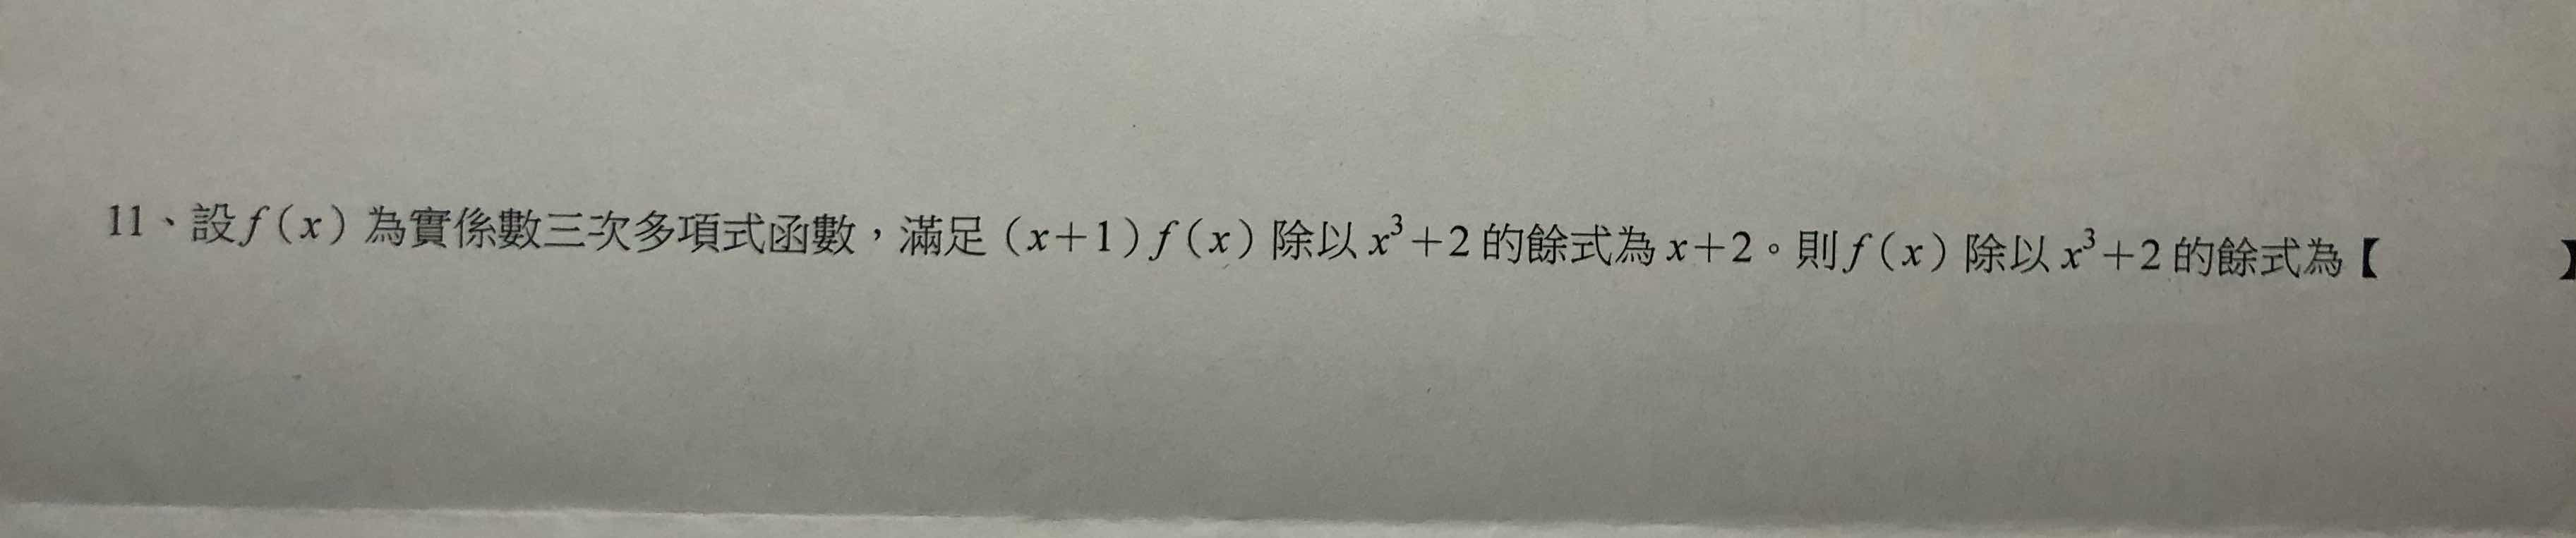 11、設f(x)為實係數三次多項式函數，滿足(x+1)f(x)除以x³+2的餘式為x+2。則f(x)除以x³+2的餘式為【 】